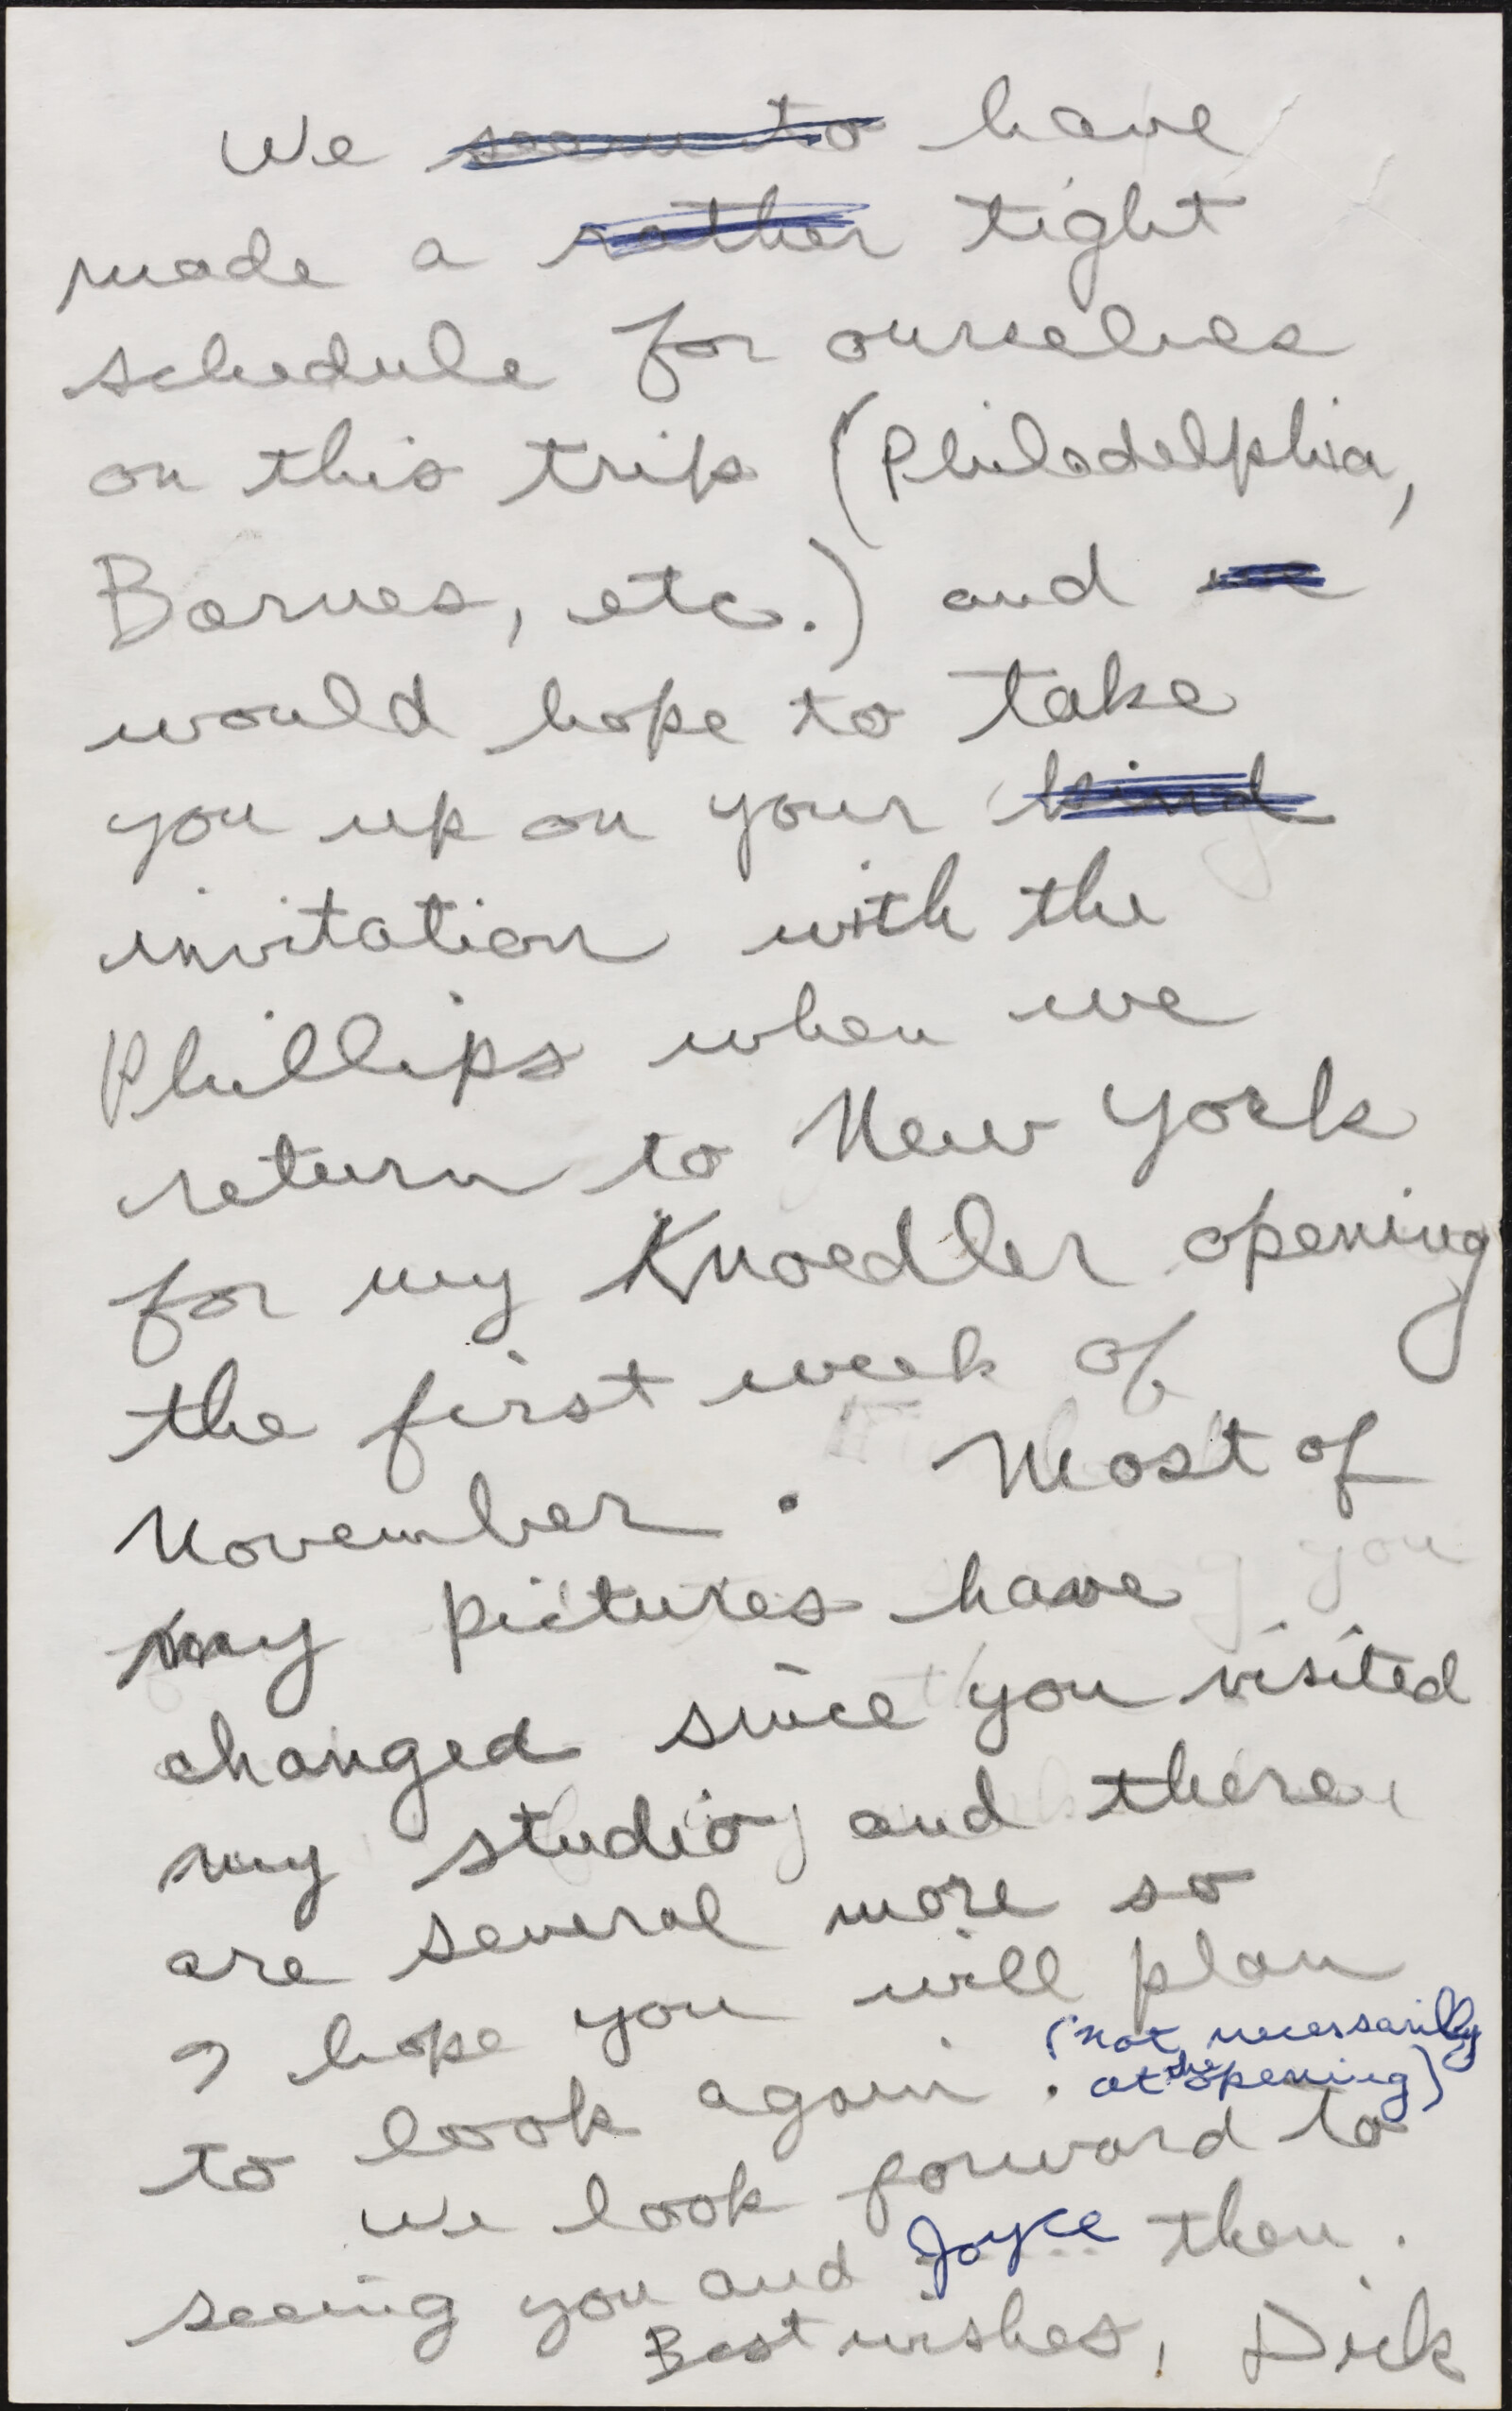 We seem to have
made a rather tight
schedule for ourselves
on this trip (Philadelphia,
Barnes, etc.) and we
would hope to take
you up on your kind
invitation with the
Phillips when we
return to New York
for my Knoedler opening
the first week of
November. Most of
my pictures have
changed since you visited
my studio, and there
are several more so
I hope you will plan
to look again. (not necessarily
at the opening)
We look forward to
seeing you and Joyce then.
Best wishes, Dick